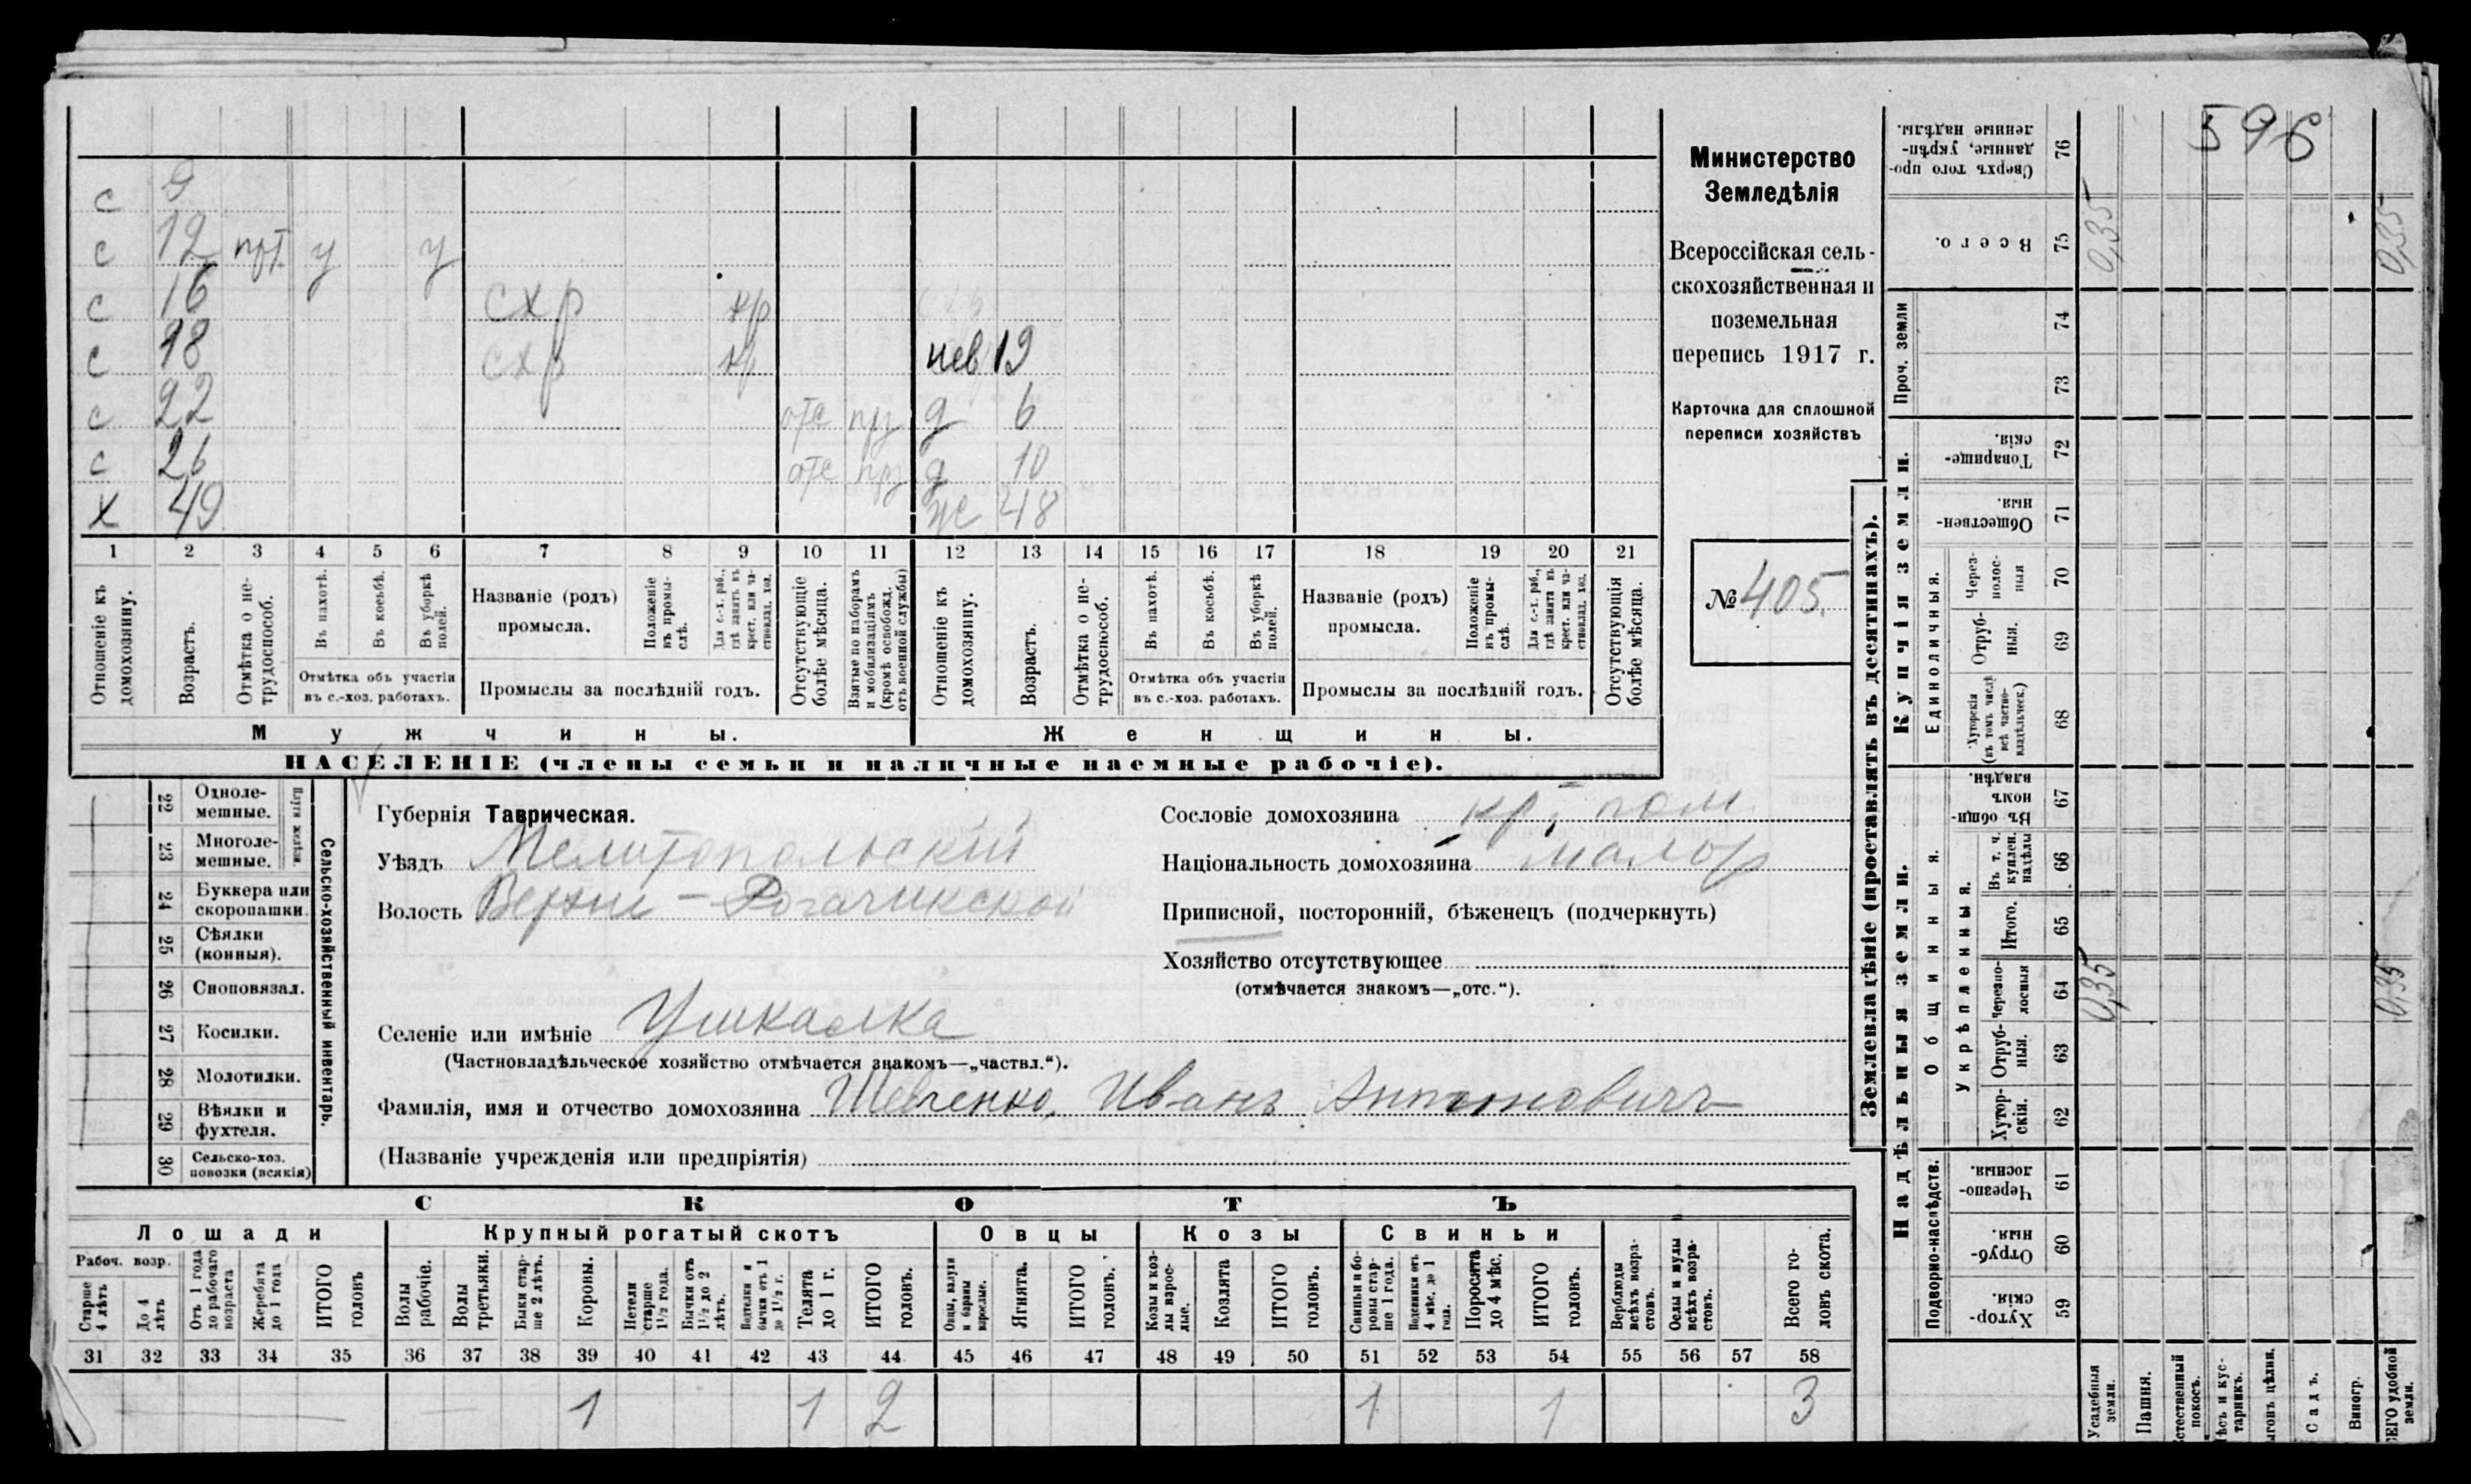 596
с 9
с 12 прт. у у
с 16 схр кр
с 18 схр кр нев 19
с 22 отс пр д 6
с 26 отс пр д 10
х 49 ж 48
1 2 3 4 5 6 7 8 9 10 11 12 13 14 15 16 17 18 19 20 21
Отношеніе къ домохозяину.
Возрастъ.
Отмѣтка о нетрудоспособ.
Въ пахотѣ.
Въ косьбѣ.
Въ уборкѣ полей.
Отмѣтка объ участіи
въ с.-хоз. работахъ.
Названіе (родъ)
промысла.
Положеніе въ промыслѣ.
Для с.-х. раб., гдѣ занятъ въ крест. или частновлад. хоз.
Промыслы за послѣдній годъ.
Отсутствующіе болѣе мѣсяца.
Взятые по наборамъ и мобилизаціямъ (кромѣ освобожд. отъ военной службы)
Отношеніе къ домохозяину.
Возрастъ.
Отмѣтка о нетрудоспособ.
Въ пахотѣ.
Въ косьбѣ.
Въ уборкѣ полей.
Отмѣтка объ участіи
въ с.-хоз. работахъ.
Названіе (родъ)
промысла.
Положеніе въ промыслѣ.
Для с.-х. раб., гдѣ занята въ крест. или частновлад. хоз.
Промыслы за послѣдній годъ.
Отсутствующія болѣе мѣсяца.
Мужчины.
Женщины.
НАСЕЛЕНІЕ (члены семьи и наличные наемные рабочіе).
Министерство
Земледѣлія
Всероссійская сель-
скохозяйственная и
поземельная
перепись 1917 г.
Карточка для сплошной
переписи хозяйствъ
№ 405.
22 Однолемешные.
23 Многолемешные.
Плуги желѣзн.
24 Буккера или скоропашки.
25 Сѣялки (конныя).
26 Сноповязал.
27 Косилки.
28 Молотилки.
29 Вѣялки и фухтеля.
30 Сельско-хоз. повозки (всякія)
Сельско-хозяйственный инвентарь.
Губернія Таврическая.
Уѣздъ Мелитопольскій
Волость Верхне-Рогачикской
Селеніе или имѣніе Ушкалка
(Частновладѣльческое хозяйство отмѣчается знакомъ—„частвл.“).
Фамилія, имя и отчество домохозяина Шевченко, Иванъ Антоновичъ
(Названіе учрежденія или предпріятія)
Сословіе домохозяина кр. пом.
Національность домохозяина малор
Приписной, посторонній, бѣженецъ (подчеркнуть)
Хозяйство отсутствующее
(отмѣчается знакомъ—„отс.“).
СКОТЪ
Лошади
Крупный рогатый скотъ
Овцы
Козы
Свиньи
Рабоч. возр.
Старше 4 лѣтъ
До 4 лѣтъ
Отъ 1 года до рабочаго возраста
Жеребята до 1 года
ИТОГО головъ
Волы рабочіе.
Волы третьяки.
Быки старше 2 лѣтъ.
Коровы.
Нетели старше 1½ года.
Бычки отъ 1½ до 2 лѣтъ.
Подтелки и бычки отъ 1 до 1½ г.
Телята до 1 г.
ИТОГО головъ.
Овцы, валухи и бараны взрослые.
Ягнята.
ИТОГО головъ.
Козы и козлы взрослые.
Козлята
ИТОГО головъ.
Свиньи и боровы старше 1 года.
Подсвинки отъ 4 мѣс. до 1 года.
Поросята до 4 мѣс.
ИТОГО головъ.
Верблюды всѣхъ возрастовъ.
Ослы и мулы всѣхъ возрастовъ.
Всего головъ скота.
31 32 33 34 35 36 37 38 39 40 41 42 43 44 45 46 47 48 49 50 51 52 53 54 55 56 57 58
1 1 2 1 1 3
Землевладѣніе (проставлять въ десятинахъ).
Надѣльныя земли.
Купчія земли.
Проч. земли
Подворно-наслѣдств.
Общинныя.
Укрѣпленныя.
Единоличныя.
59 Хуторскія.
60 Отрубныя.
61 Черезполосныя.
62 Хуторскія.
63 Отрубныя.
64 Черезполосныя
65 Итого.
66 В. т. ч. куплен. надѣлы
67 Въ общинномъ владѣн.
68 Хуторскія (въ томъ числѣ всѣ частновладѣльческ.)
69 Отрубныя.
70 Черезполосныя
71 Общественныя
72 Товарищескія.
73
74
75 Всего.
76 Сверхъ того проданные, укрѣпленные надѣлы.
0,35 0,35
0,35 0,35
Усадебныя земли.
Пашня.
Естественный покосъ.
Лѣсъ и кустарникъ.
Выгонъ цѣлин.
Садъ.
Виногр.
ВСЕГО удобной земли.